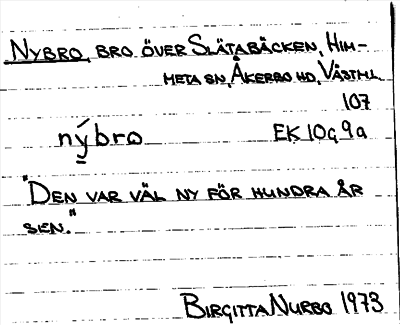 NYBRO, BRO ÖVER SLÄTABÄCKEN, HIM-
META SN, ÅKERBO HD, VÄSTML.
107
nýbro EK 10G 9a
"DEN VAR VÄL NY FÖR HUNDRA ÅR
SEN."
BIRGITTA NURBO 1973